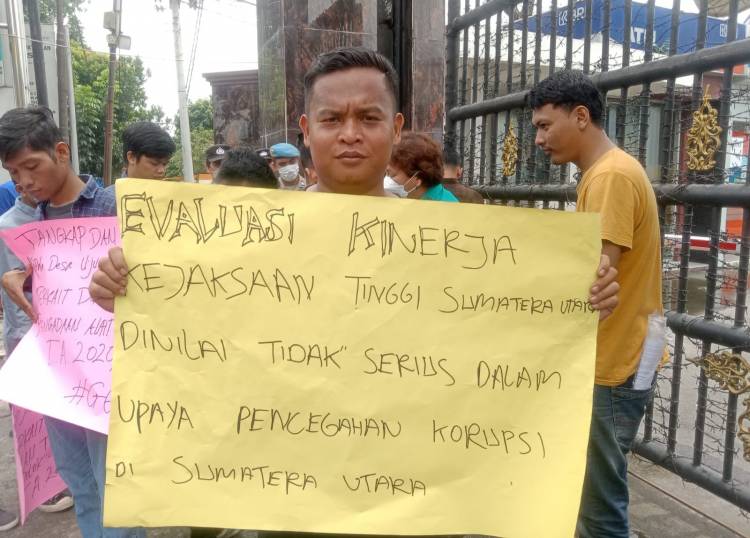 EVALUASI KINERJA
KEJAKSAAN TINGGI SUMATERA UTARA
DINILAI TIDAK" SERIUS DALAM
UPAYA PENCEGAHAN KORUPSI
DI SUMATERA UTARA
TANGKAP DAN
Desa
TA 2020